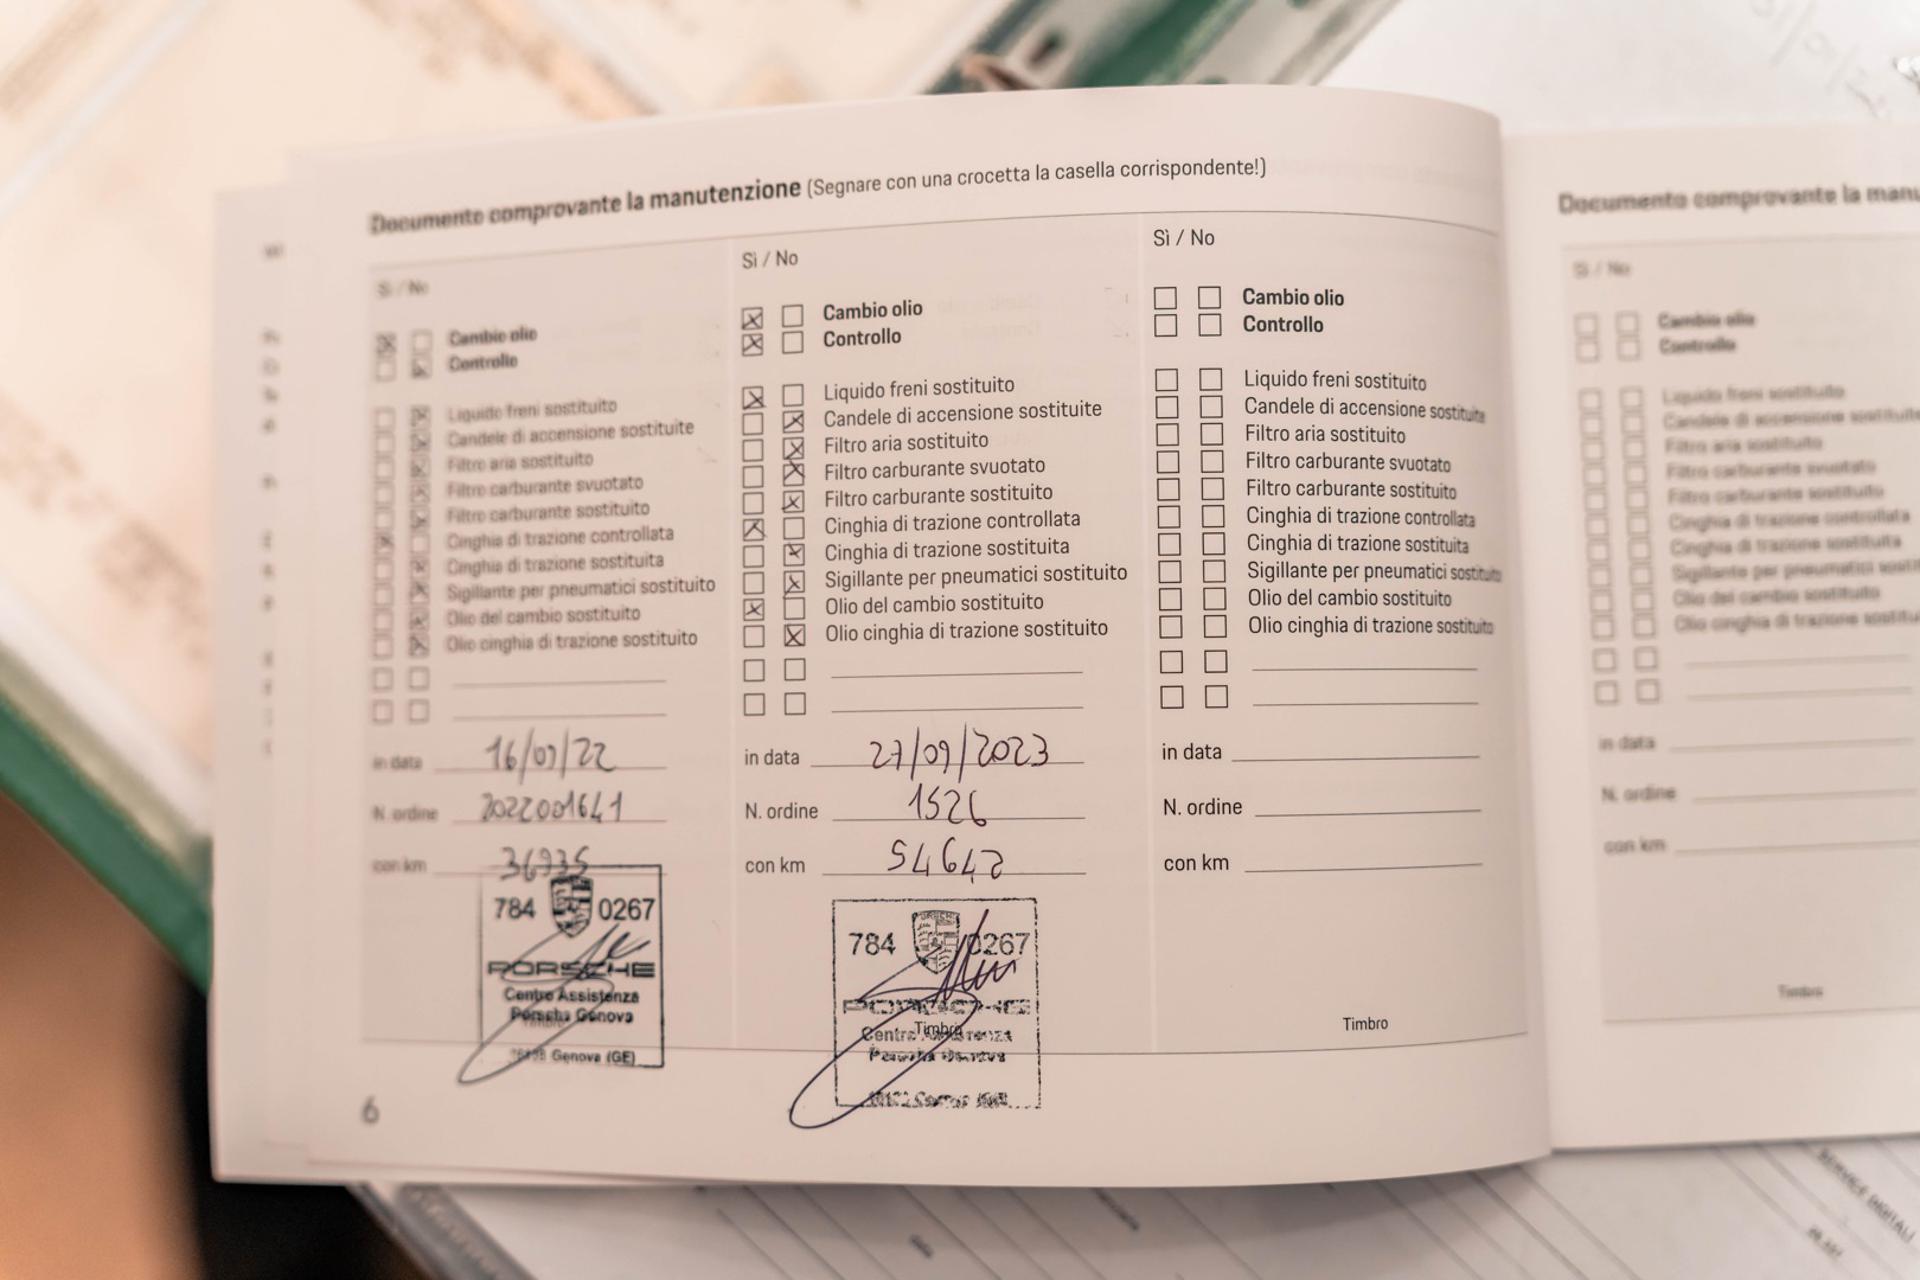 Documento comprovante la manutenzione (Segnare con una crocetta la casella corrispondente!)
Sì / No
Cambio olio
Controllo
Liquido freni sostituito
Candele di accensione sostituite
Filtro aria sostituito
Filtro carburante svuotato
Filtro carburante sostituito
Cinghia di trazione controllata
Cinghia di trazione sostituita
Sigillante per pneumatici sostituito
Olio del cambio sostituito
Olio cinghia di trazione sostituito
in data 16/09/22
N. ordine 2022001641
con km 36935
784 0267
PORSCHE
Centro Assistenza
Porsche Genova
Timbro
Genova (GE)
6
Sì / No
Cambio olio
Controllo
Liquido freni sostituito
Candele di accensione sostituite
Filtro aria sostituito
Filtro carburante svuotato
Filtro carburante sostituito
Cinghia di trazione controllata
Cinghia di trazione sostituita
Sigillante per pneumatici sostituito
Olio del cambio sostituito
Olio cinghia di trazione sostituito
in data 27/09/2023
N. ordine 1526
con km 54642
784 0267
PORSCHE
Timbro
Centro Assistenza
Porsche Genova
Sì / No
Cambio olio
Controllo
Liquido freni sostituito
Candele di accensione sostituite
Filtro aria sostituito
Filtro carburante svuotato
Filtro carburante sostituito
Cinghia di trazione controllata
Cinghia di trazione sostituita
Sigillante per pneumatici sostituito
Olio del cambio sostituito
Olio cinghia di trazione sostituito
in data
N. ordine
con km
Timbro
Documento comprovante la manu
Sì / No
Cambio olio
Controllo
Liquido freni sostituito
Candele di accensione sostituite
Filtro aria sostituito
Filtro carburante svuotato
Filtro carburante sostituito
Cinghia di trazione controllata
Cinghia di trazione sostituita
Sigillante per pneumatici sosti
Olio del cambio sostituito
Olio cinghia di trazione sostitu
in data
N. ordine
con km
Timbro
SERVICE DIGITALI